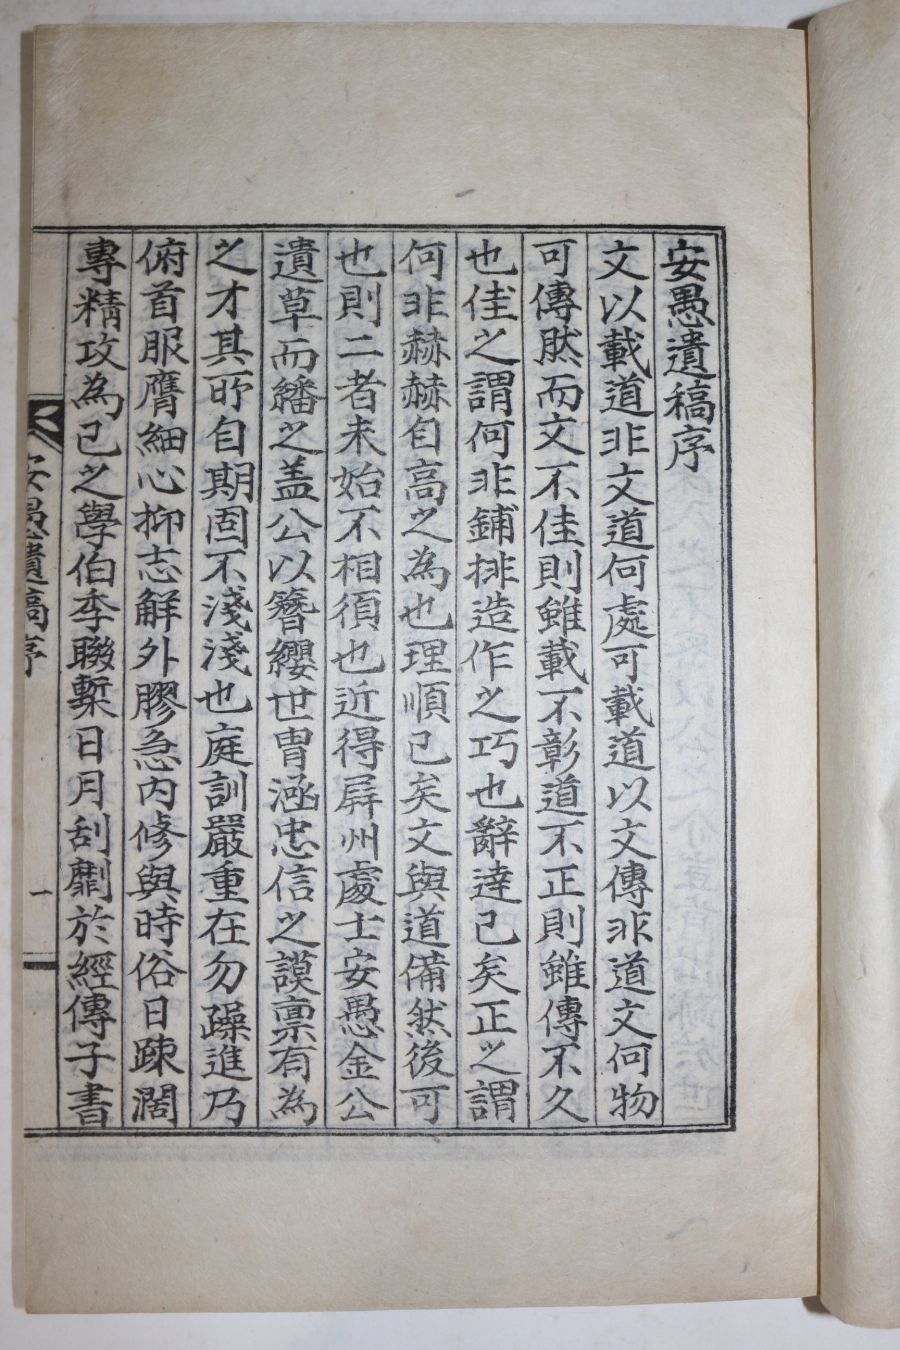 安愚遺稿序
文以載道非文道何處可載道以文傳非道文何物
可傳肰而文不佳則雖載不彰道不正則雖傳不久
也佳之謂何非鋪排造作之巧也辭達已矣正之謂
何非赫赫自高之為也理順已矣文與道備然後可
也則二者未始不相須也近得屛州處士安愚金公
遺草而繙之盖公以簪纓世冑涵忠信之謨禀有為
之才其所自期固不淺淺也庭訓嚴重在勿躁進乃
俯首服膺細心抑志解外膠急內修與時俗日踈濶
專精攻為己之學伯季聯槧日月刮劘於經傳子書
安愚遺稿序
一